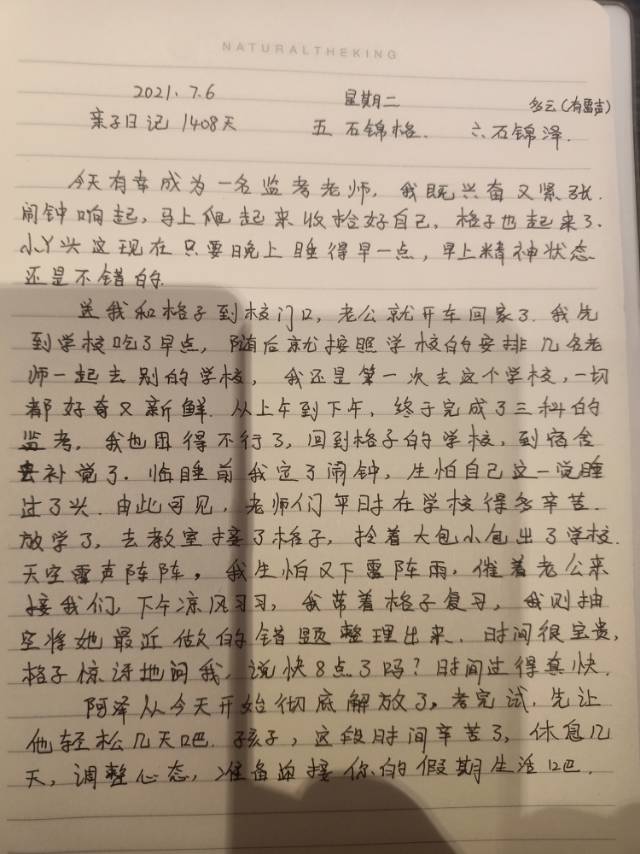 NATURALTHEKING
2021.7.6 星期二 多云(有雷声)
亲子日记 1408天 五 石锦格. 六 石锦泽.
今天有幸成为一名监考老师, 我既兴奋又紧张.
闹钟响起, 马上爬起来收拾好自己, 格子也起来了.
小丫头这现在只要晚上睡得早一点, 早上精神状态
还是不错的.
送我和格子到校门口, 老公就开车回家了. 我先
到学校吃了早点, 随后就按照学校的安排几名老
师一起去别的学校, 我还是第一次去这个学校, 一切
都好奇又新鲜. 从上午到下午, 终于完成了三科的
监考. 我也困得不行了, 回到格子的学校, 到宿舍
去补觉了. 临睡前我定了闹钟, 生怕自己这一觉睡
过了头. 由此可见, 老师们平时在学校得多辛苦.
放学了, 去教室接了格子, 拎着大包小包出了学校.
天空雷声阵阵, 我生怕又下雷阵雨, 催着老公来
接我们, 下午凉风习习, 我带着格子复习, 我则抽
空将她最近做的错题整理出来. 时间很宝贵,
格子惊讶地问我, 说快8点了吗? 时间过得真快.
阿泽从今天开始彻底解放了, 考完试, 先让
他轻松几天吧. 孩子, 这段时间辛苦了, 休息几
天, 调整心态, 准备迎接你的假期生活吧.